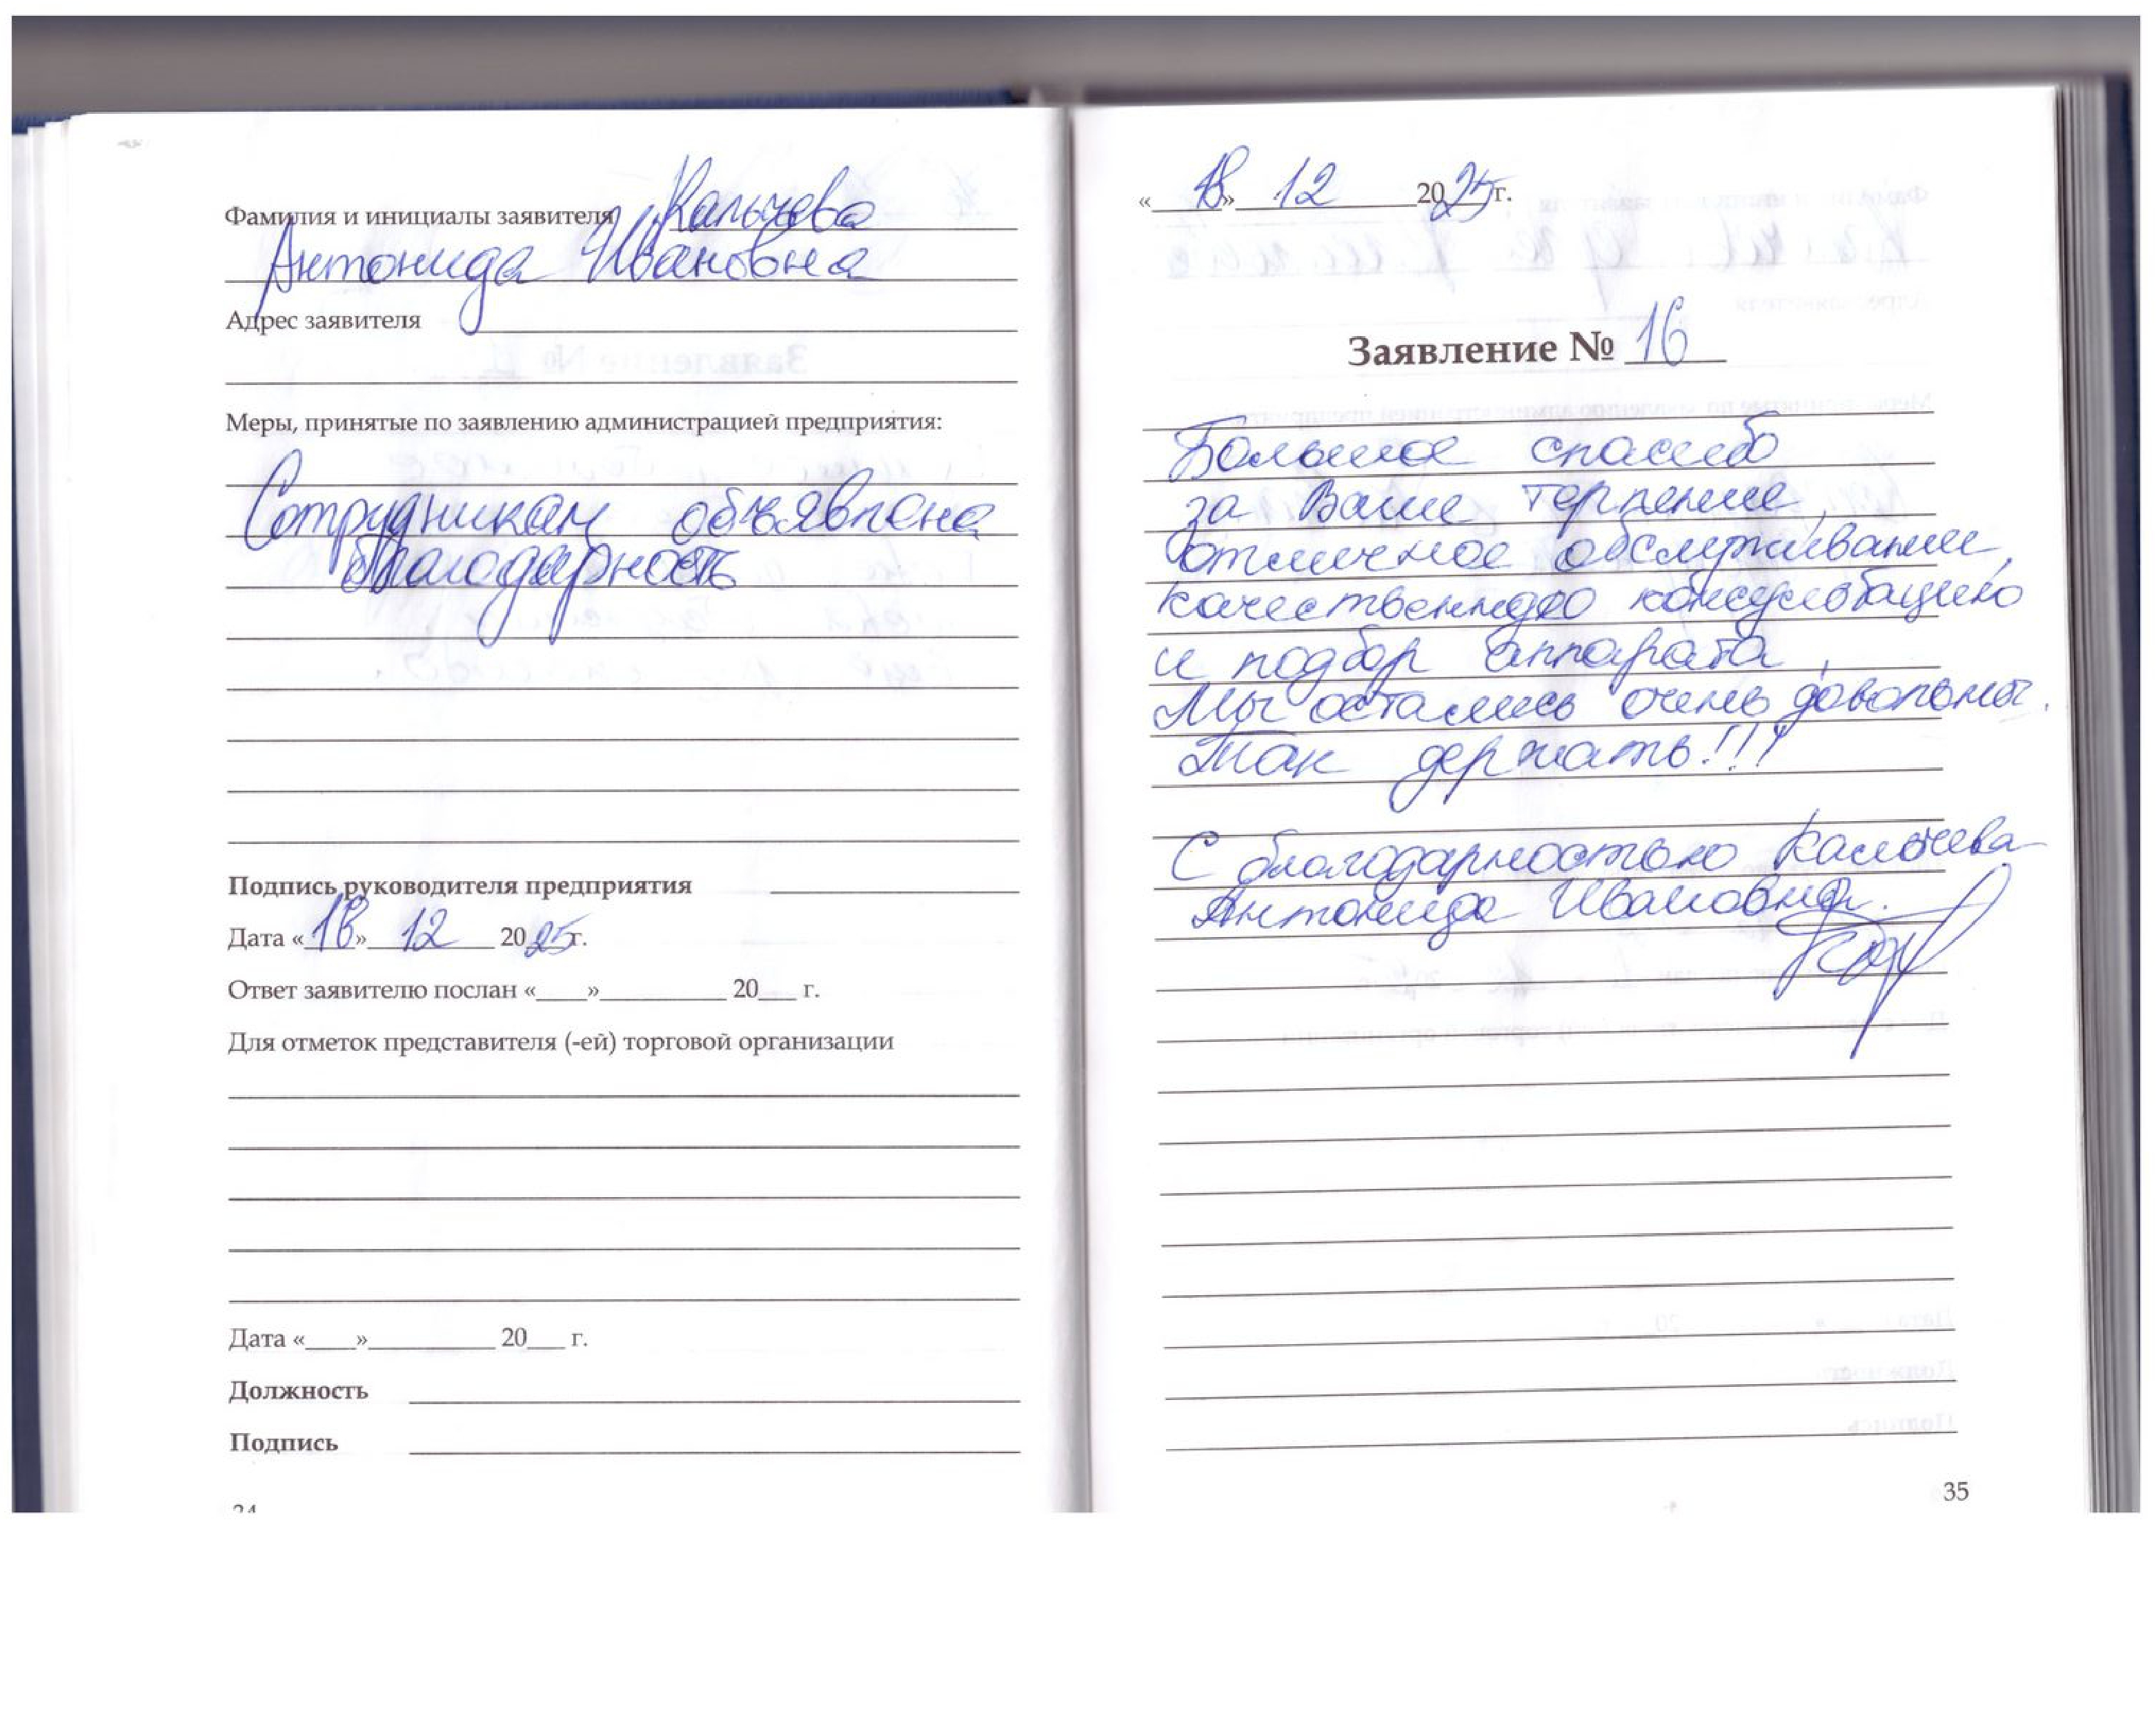 Фамилия и инициалы заявителя Кальчева
Антонида Ивановна
Адрес заявителя
Меры, принятые по заявлению администрацией предприятия:
Сотрудникам объявлена
благодарность
Подпись руководителя предприятия
Дата «18» 12 2025 г.
Ответ заявителю послан «____»__________ 20___ г.
Для отметок представителя (-ей) торговой организации
Дата «____»__________ 20___ г.
Должность
Подпись
34
«18» 12 2025 г.
Заявление № 16
Большое спасибо
за Ваше терпение,
отличное обслуживание,
качественную консультацию
и подбор аппарата,
Мы остались очень довольны.
Так держать!!!
С благодарностью Кальчева
Антонида Ивановна.
35